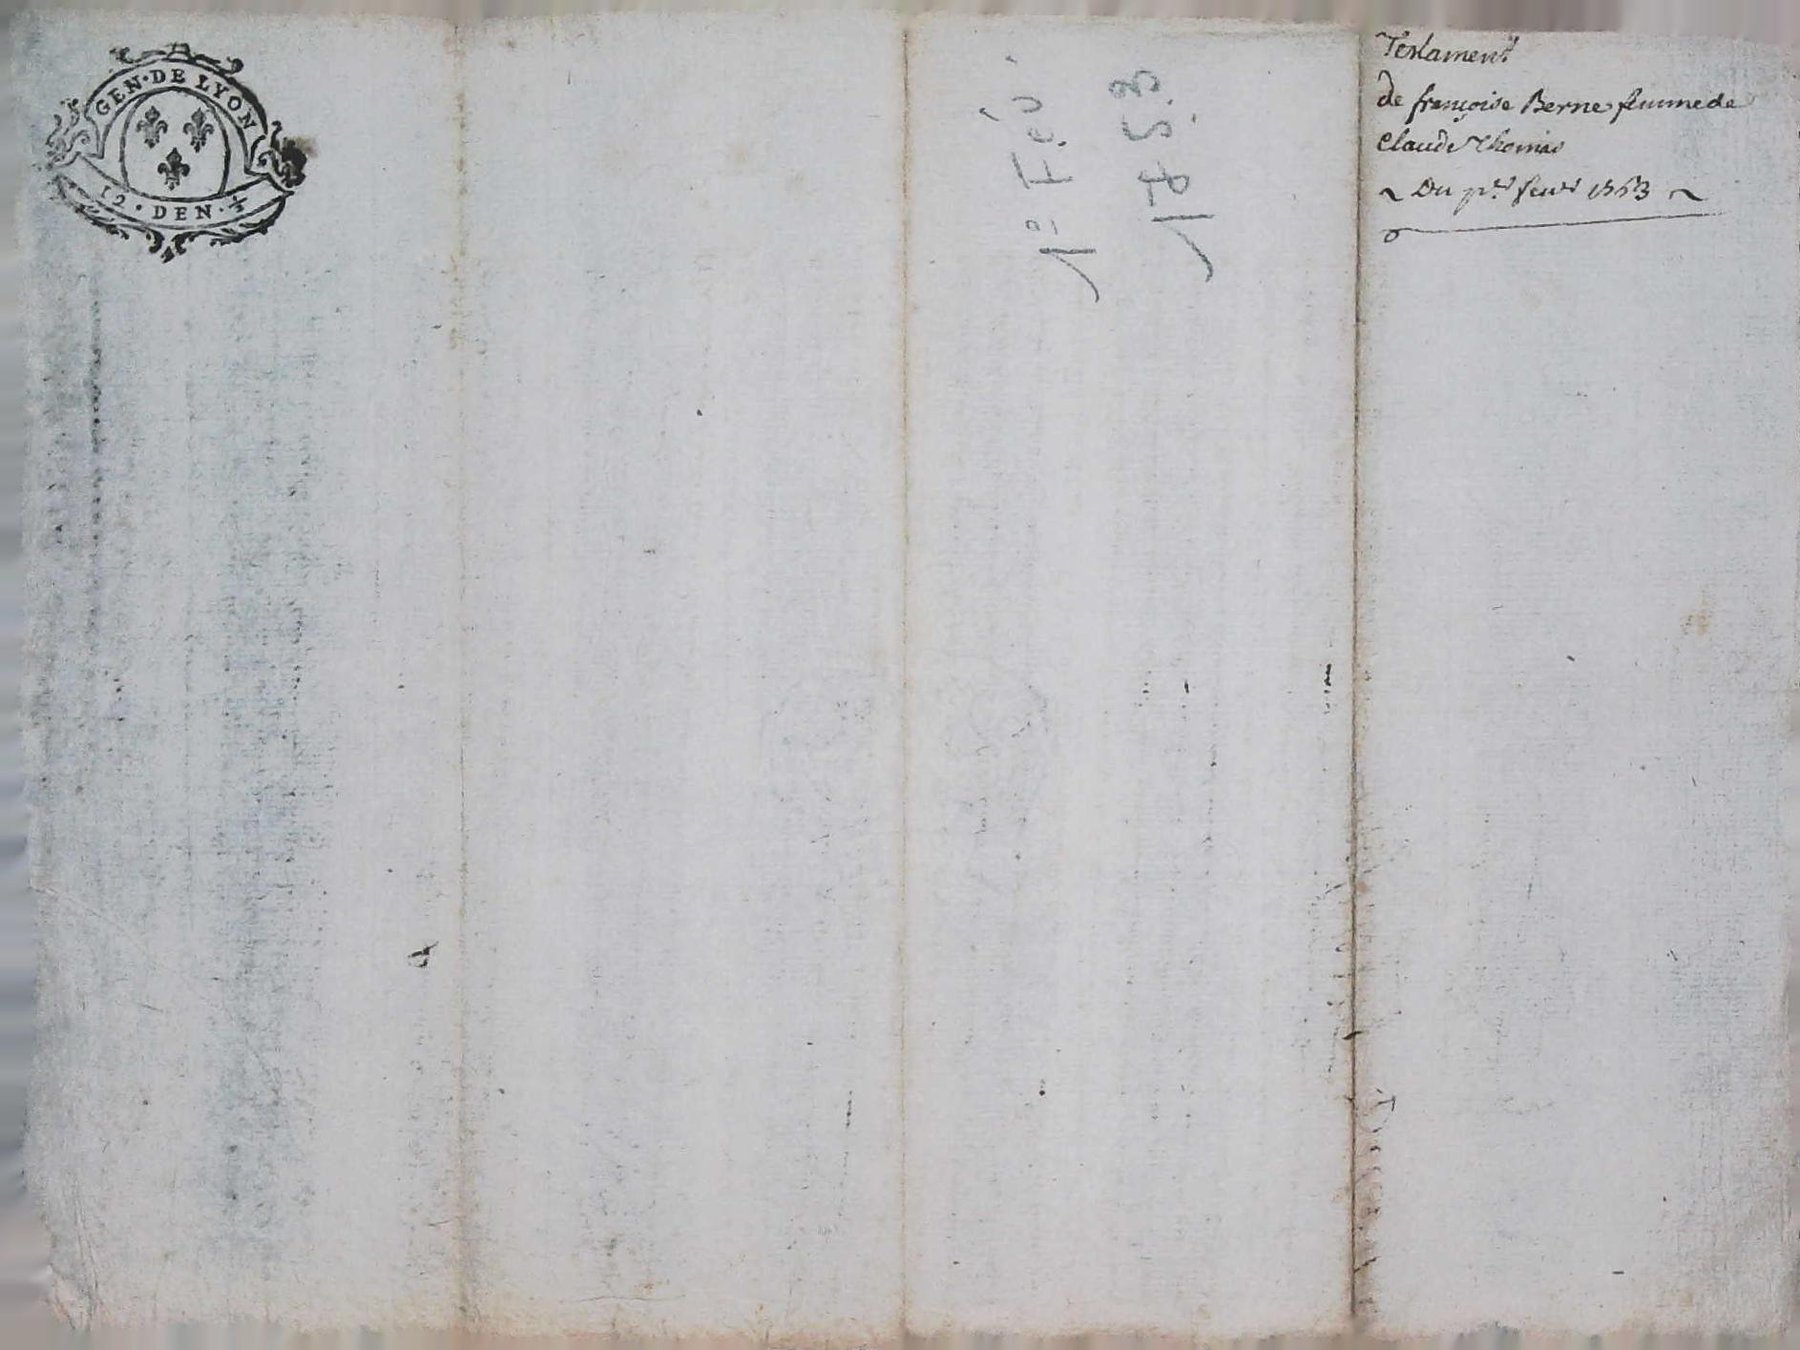 GEN·DE LYON
12·DEN·½
1º Fév.
1753
Testament
De françoise Berne femme de
Claude Thomas
~ Du pr. fevr 1753 ~